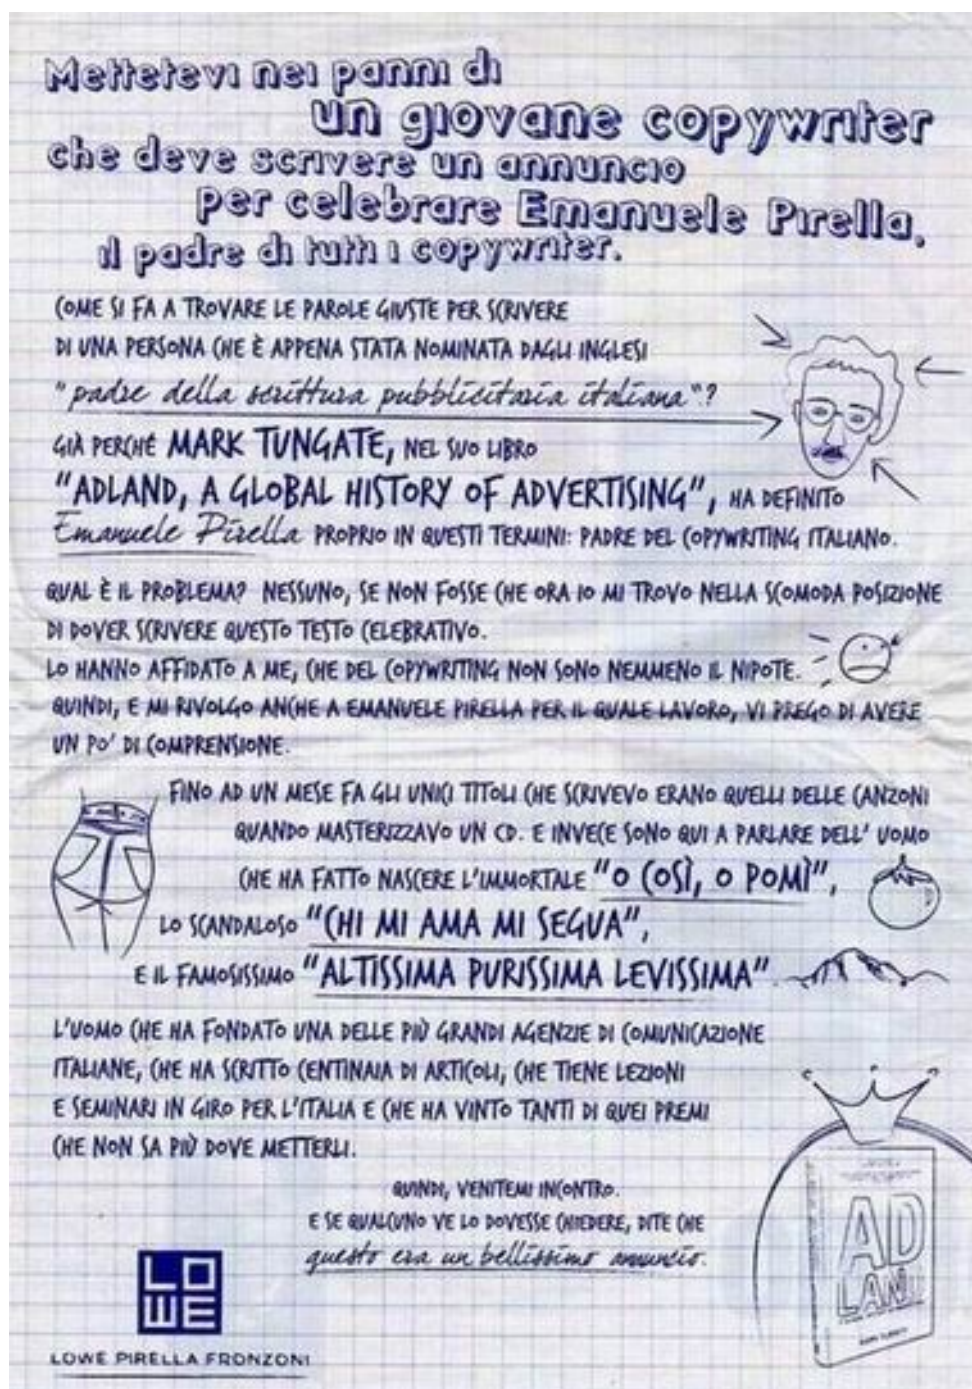 Mettetevi nei panni di
un giovane copywriter
che deve scrivere un annuncio
per celebrare Emanuele Pirella,
il padre di tutti i copywriter.
COME SI FA A TROVARE LE PAROLE GIUSTE PER SCRIVERE
DI UNA PERSONA CHE È APPENA STATA NOMINATA DAGLI INGLESI
"padre della scrittura pubblicitaria italiana"?
GIÀ PERCHÉ MARK TUNGATE, NEL SUO LIBRO
"ADLAND, A GLOBAL HISTORY OF ADVERTISING", HA DEFINITO
Emanuele Pirella PROPRIO IN QUESTI TERMINI: PADRE DEL COPYWRITING ITALIANO.
QUAL È IL PROBLEMA? NESSUNO, SE NON FOSSE CHE ORA IO MI TROVO NELLA SCOMODA POSIZIONE
DI DOVER SCRIVERE QUESTO TESTO CELEBRATIVO.
LO HANNO AFFIDATO A ME, CHE DEL COPYWRITING NON SONO NEMMENO IL NIPOTE.
QUINDI, E MI RIVOLGO ANCHE A EMANUELE PIRELLA PER IL QUALE LAVORO, VI PREGO DI AVERE
UN PO' DI COMPRENSIONE.
FINO AD UN MESE FA GLI UNICI TITOLI CHE SCRIVEVO ERANO QUELLI DELLE CANZONI
QUANDO MASTERIZZAVO UN CD. E INVECE SONO QUI A PARLARE DELL' UOMO
CHE HA FATTO NASCERE L'IMMORTALE "O COSÌ, O POMÌ",
LO SCANDALOSO "CHI MI AMA MI SEGUA",
E IL FAMOSISSIMO "ALTISSIMA PURISSIMA LEVISSIMA"
L'UOMO CHE HA FONDATO UNA DELLE PIÙ GRANDI AGENZIE DI COMUNICAZIONE
ITALIANE, CHE HA SCRITTO CENTINAIA DI ARTICOLI, CHE TIENE LEZIONI
E SEMINARI IN GIRO PER L'ITALIA E CHE HA VINTO TANTI DI QUEI PREMI
CHE NON SA PIÙ DOVE METTERLI.
QUINDI, VENITEMI INCONTRO.
E SE QUALCUNO VE LO DOVESSE CHIEDERE, DITE CHE
questo era un bellissimo annuncio.
AD
LAND
LO
WE
LOWE PIRELLA FRONZONI